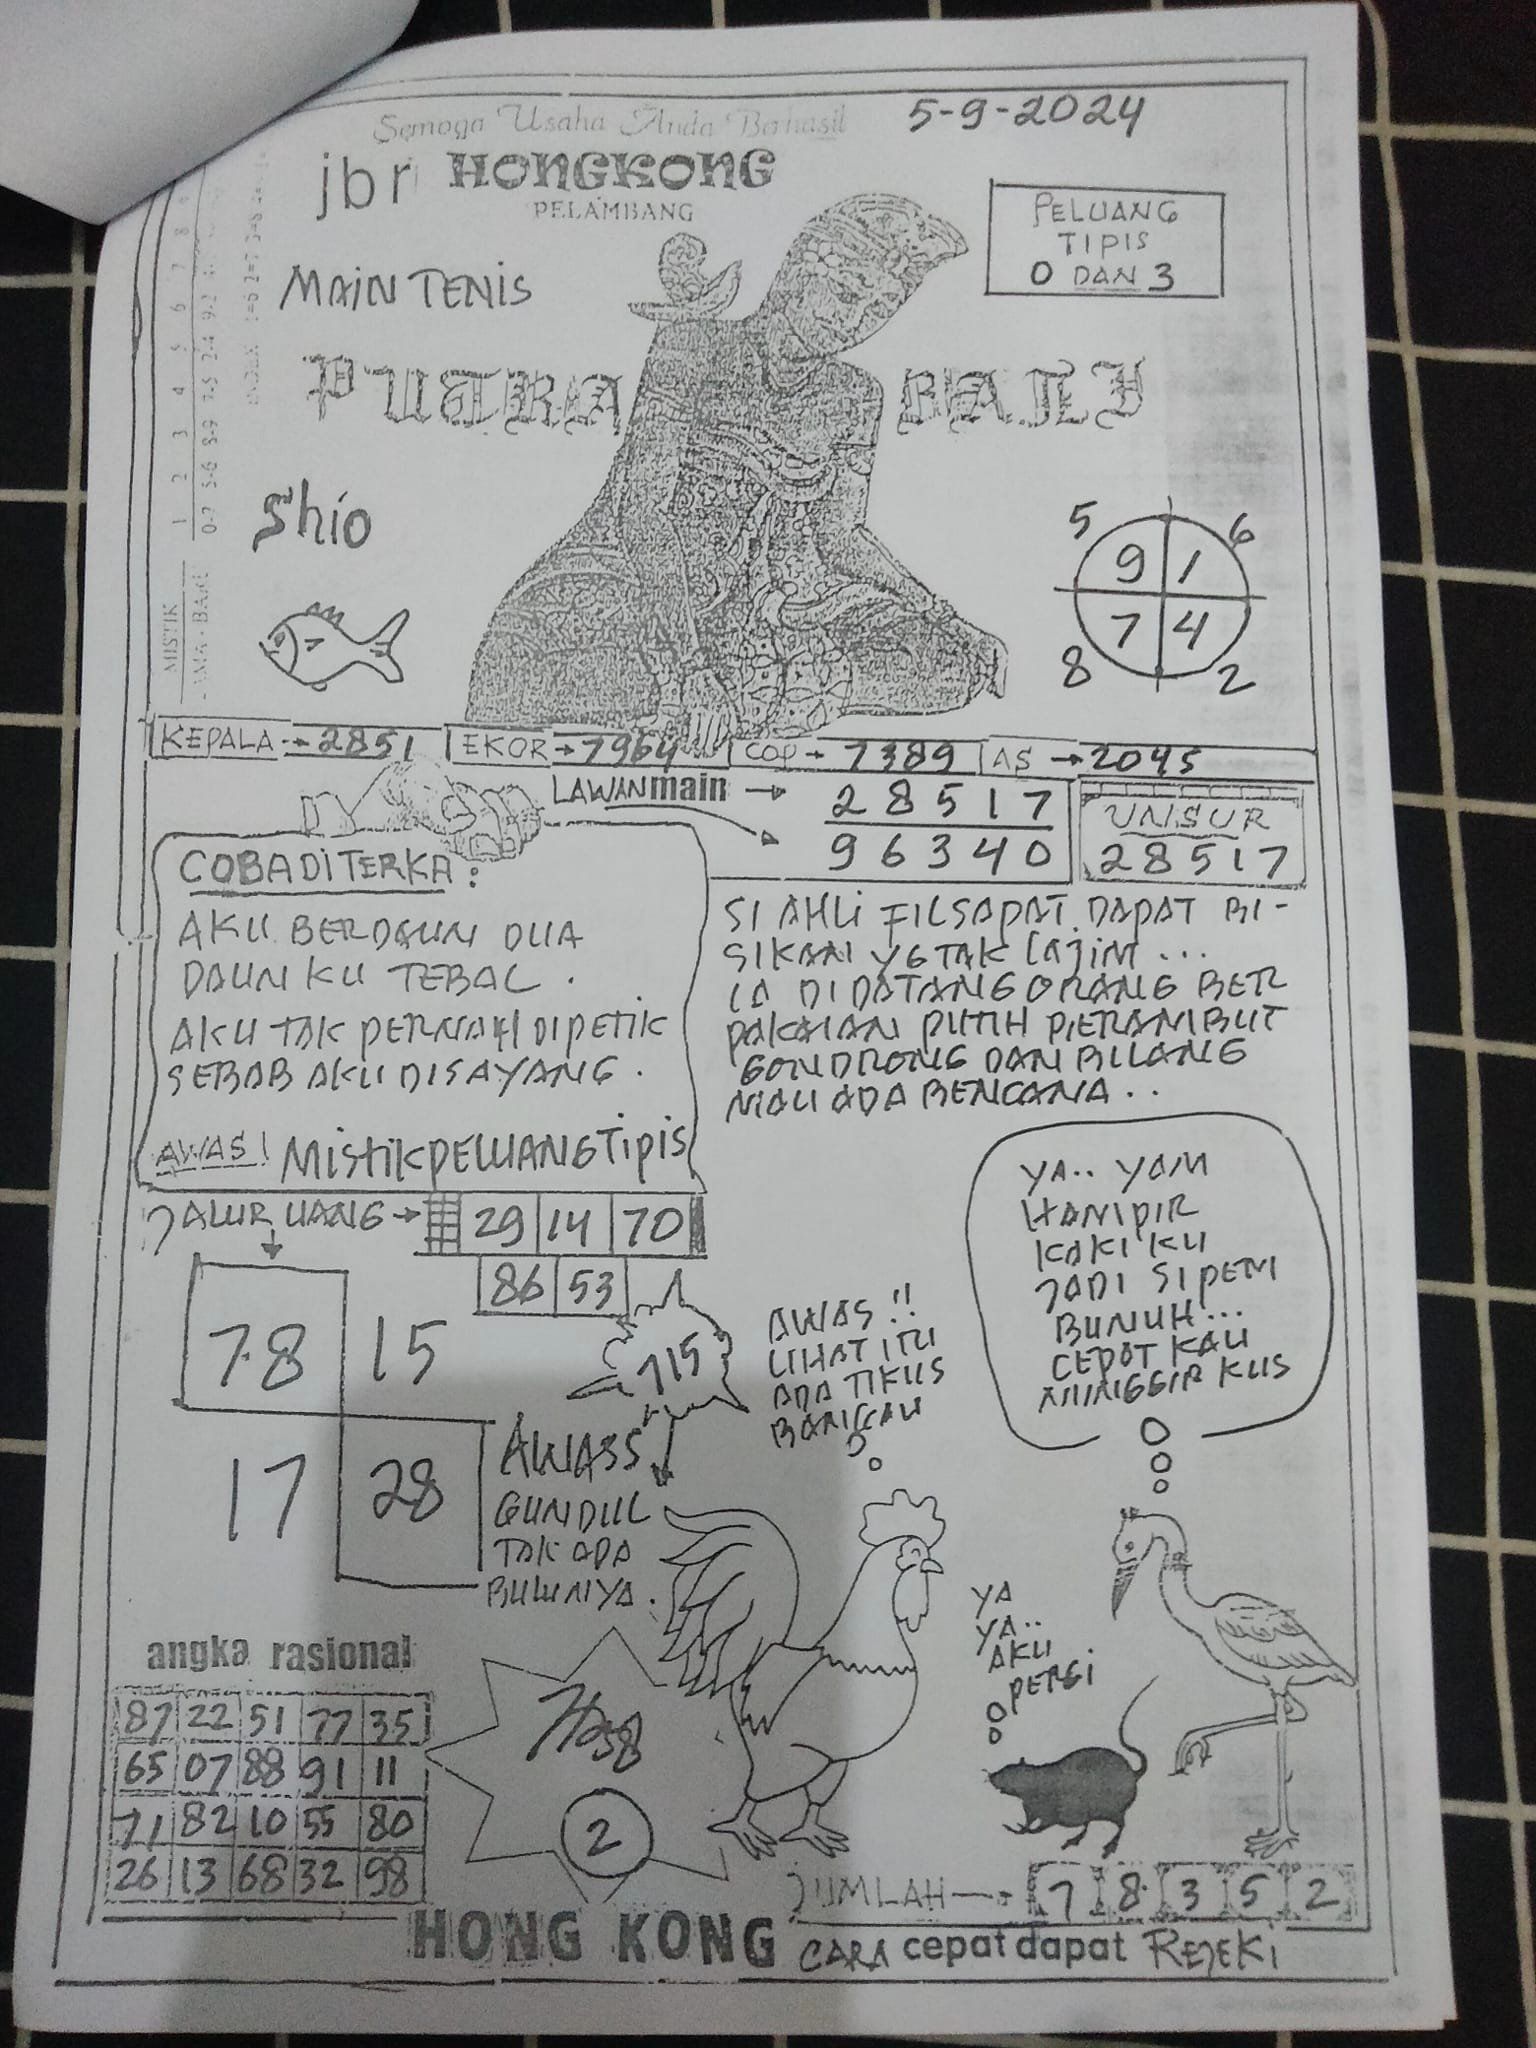 Semoga Usaha Anda Berhasil
5-9-2024
jbr HONGKONG
PELAMBANG
PELUANG
TIPIS
0 DAN 3
MAIN TENIS
PUTRA BALI
Shio
5 6
9 1
7 4
8 2
MISTIK
1 2 3 4 5 6 7 8
0-7 5-6 8-9 7-5 2-4 9-2
KEPALA → 2851
EKOR → 7964
COP → 7389
AS → 2045
LAWAN main → 28517
96340
UNSUR
28517
COBA DITERKA :
AKU BERDAUN DUA
DAUN KU TEBAL .
AKU TAK PERNAH DIPETIK
SEBAB AKU DISAYANG .
AWAS ! MISTIK PELUANG TIPIS
SI AHLI FILSAPAT DAPAT BI-
SIKAN YG TAK LAJIM ...
IA DI DATANG ORANG BER
PAKAIAN PUTIH PERAMBUT
GONDRONG DAN BILANG
NIAU ADA BENCANA ..
JALUR UANG → 29 14 70
86 53
78 15
17 28
715
AWASS
GUNDUL
TAK ADA
BULUNYA .
AWAS !!
LIHAT ITU
ADA TIKUS
BANGKAU
YA.. YAM
HAMPIR
KAKI KU
JADI SI PEM
BUNUH...
CEPAT KAU
MINGGIR KUS
YA
YA..
AKU
PERGI
angka rasional
87 22 51 77 35
65 07 88 91 11
71 82 10 55 80
26 13 68 32 98
2
JUMLAH → 7 8 3 5 2
HONG KONG CARA cepat dapat REJEKI